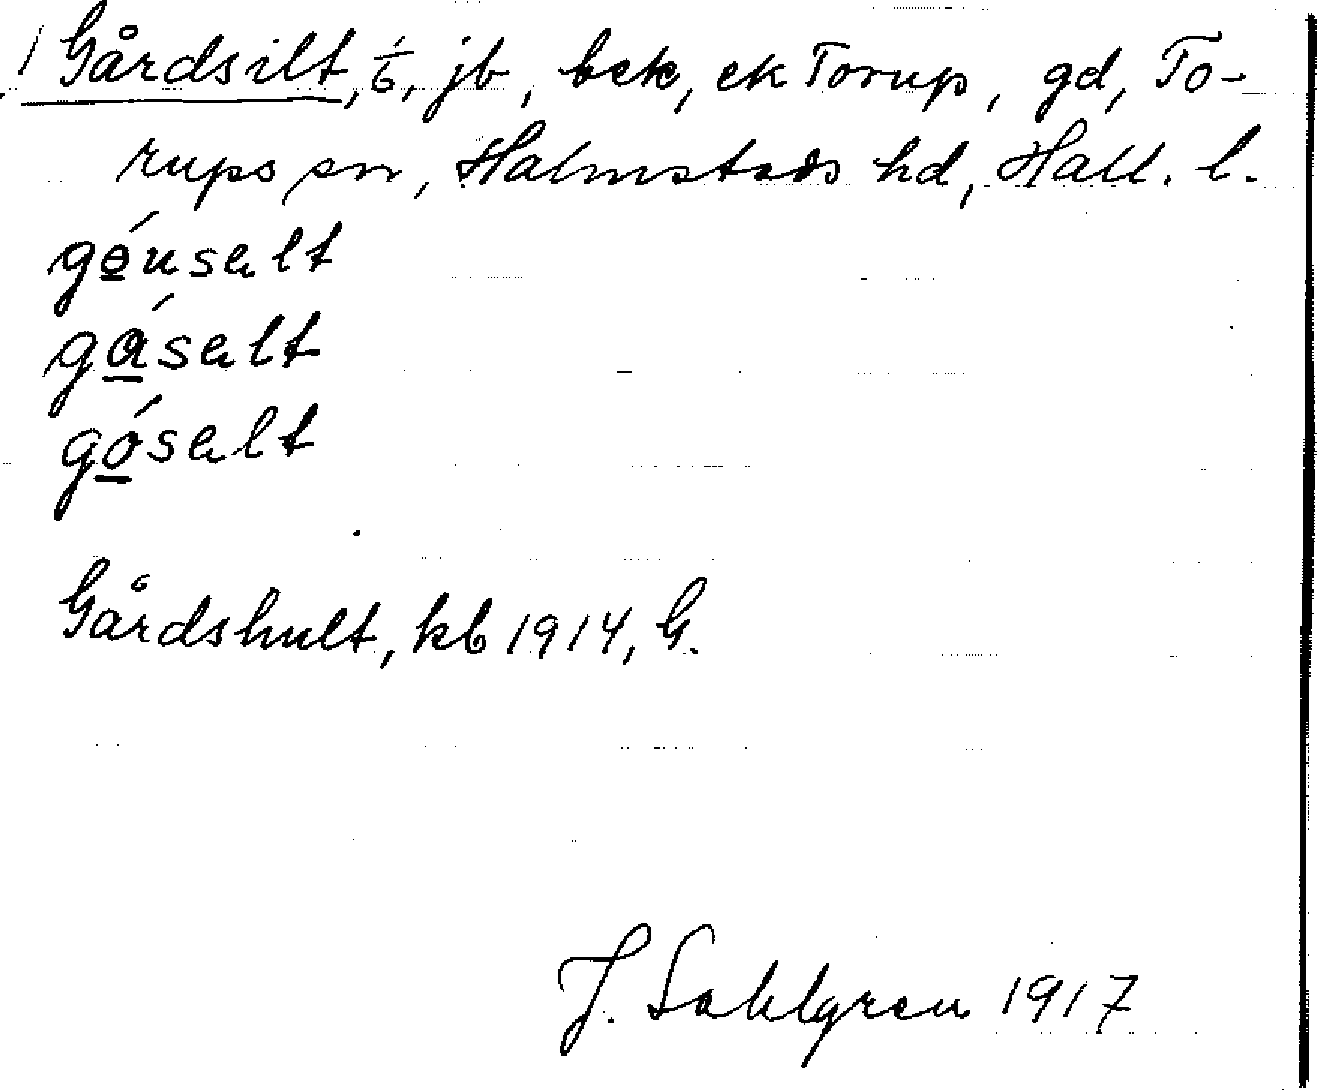 Gårdsilt, 1/6, jb, bek, ek Torup, gd, To-
rups sn, Halmstads hd, Hall. l.
góusalt
gásalt
gósalt
Gårdshult, kb 1914, G.
J. Sahlgren 1917